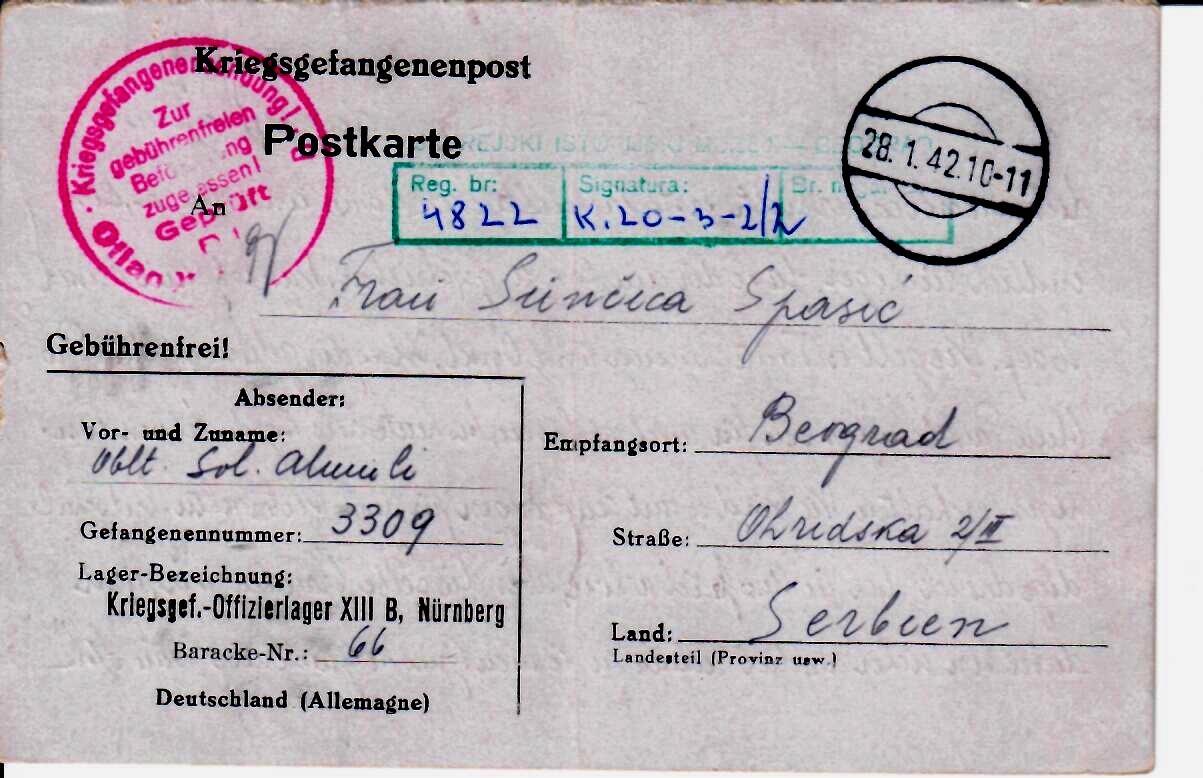 Kriegsgefangenenpost
Postkarte
Kriegsgefangenensendung!
Zur
gebührenfreien
zugelassen!
Geprüft
28.1.42.10-11
Reg. br: Signatura:
4822 K.20-3-2/2
An
Frau Sunčica Spasić
Gebührenfrei!
Absender:
Vor- und Zuname:
Oblt. Sol. Almuli
Gefangenennummer: 3309
Lager-Bezeichnung:
Kriegsgef.-Offizierlager XIII B, Nürnberg
Baracke-Nr.: 66
Deutschland (Allemagne)
Empfangsort: Beograd
Straße: Ohridska 2/II
Land: Serbien
Landesteil (Provinz usw.)